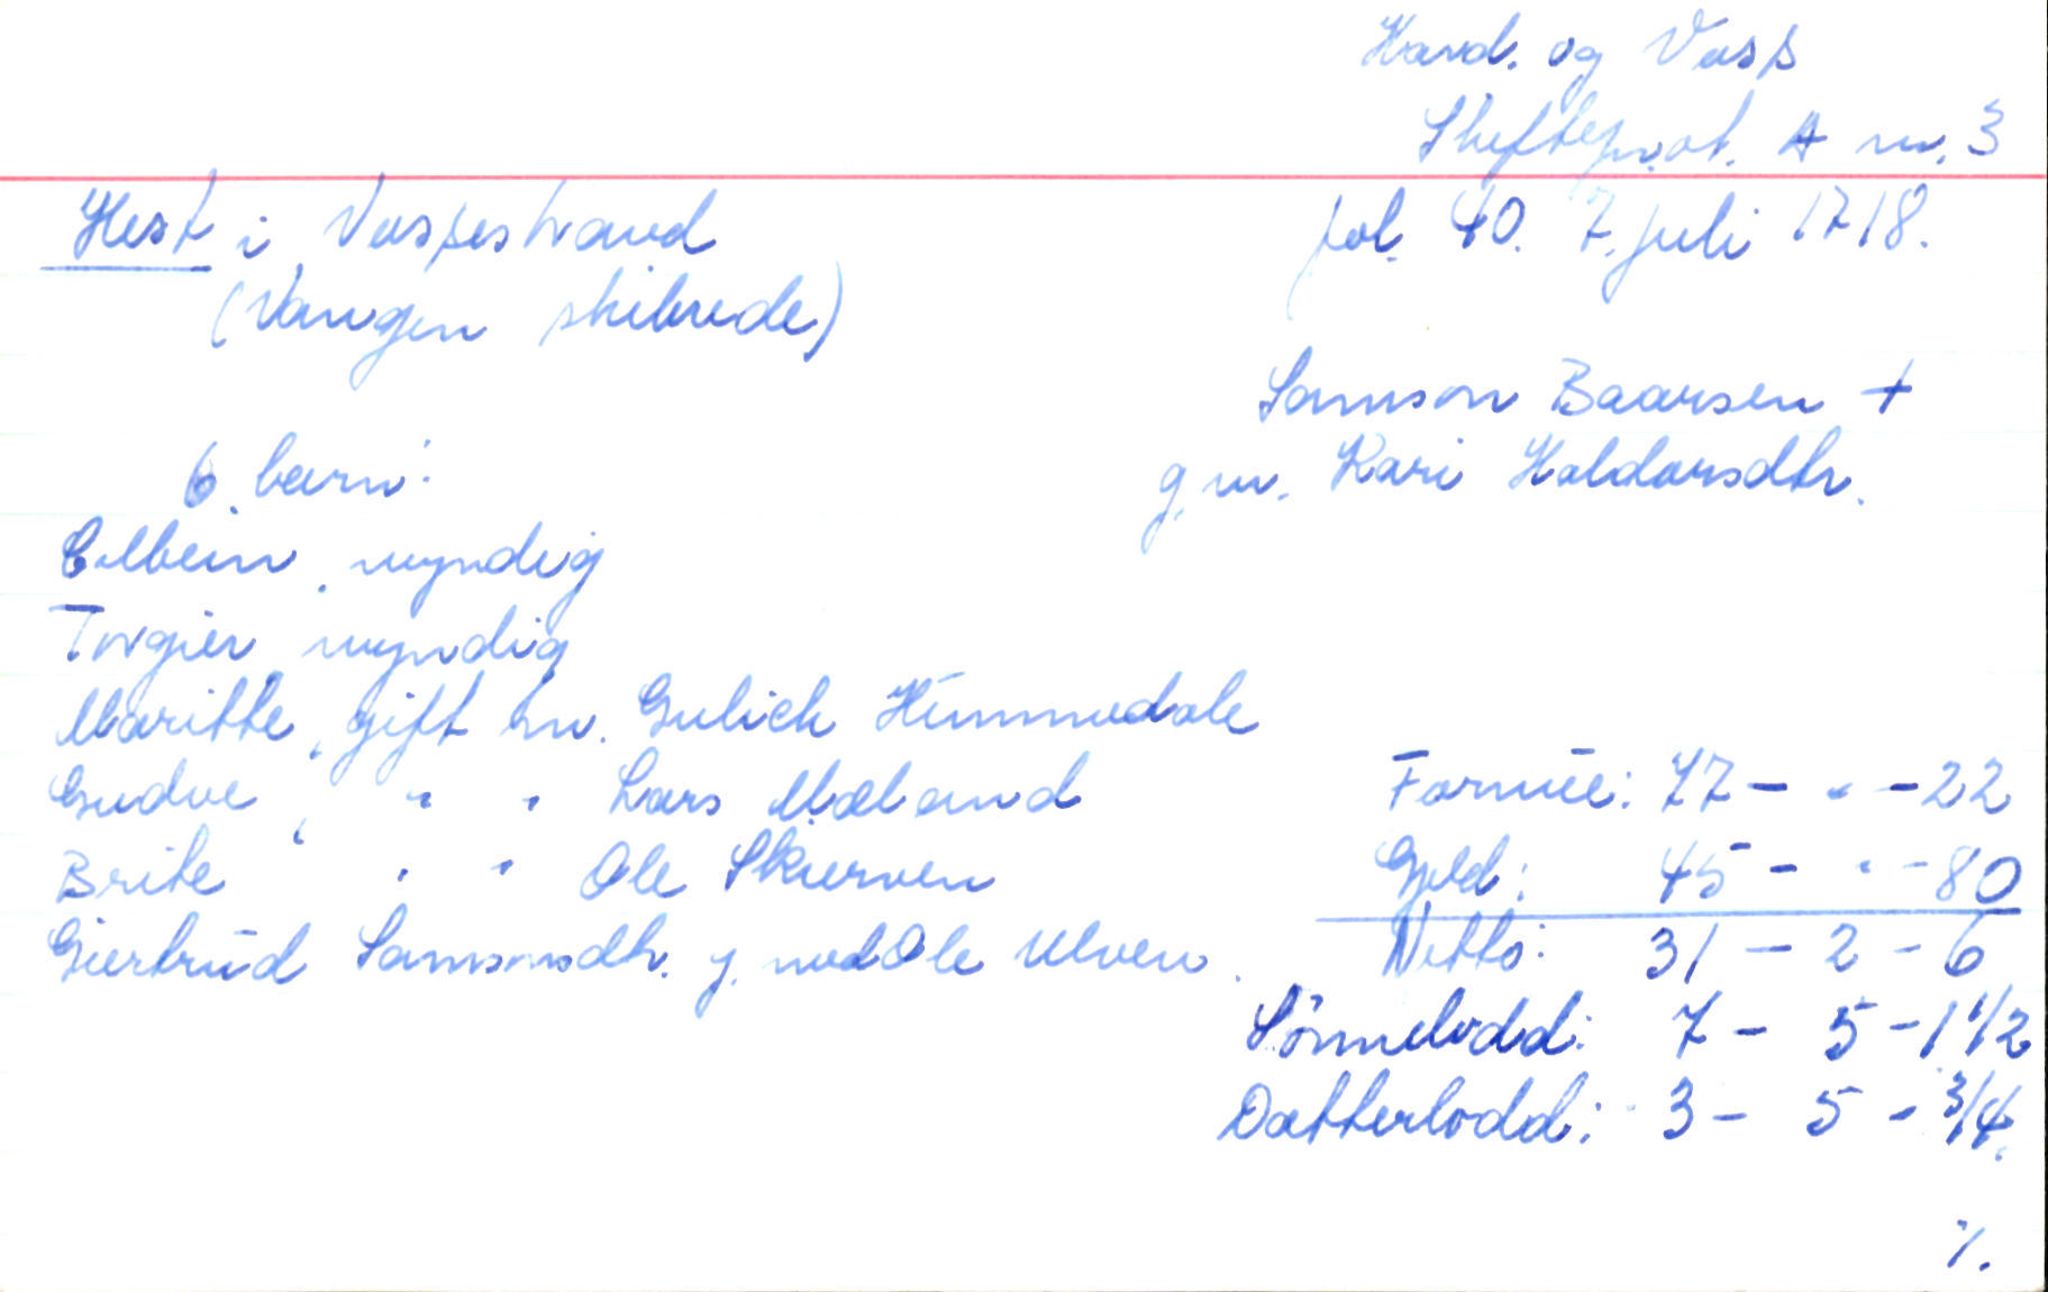 Hard. og Voss
Skifteprot. A nr. 3
Hest i Vossestrand
fol. 40. 7. juli 1718.
(Vangen skibrede)
Samson Baarsen +
g.m. Kari Haldorsdtr.
6 barn:
Colbein, myndig
Torgier myndig
Maritte, gift m. Gulich Himmedale
Gudve, " " Lars Mæland
Brite " " Ole Skierven
Giertrud Samsonsdtr. g. med Ole Ulven.
Formue: 77 - " - 22
Gjeld: 45 - " - 80
Netto: 31 - 2 - 6
Sönnelodd: 7 - 5 - 1 1/2
Datterlodd: 3 - 5 - 3/4.
%.